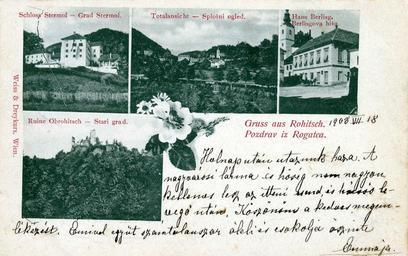 Schloss Stermol — Grad Stermol.
Totalansicht — Splošni ogled.
Hans Berlisg,
Berlisgova hiša
Weiss & Dreykurs, Wien.
Ruine Obrohitsch — Stari grad.
Gruss aus Rohitsch.
Pozdrav iz Rogatca.
1908 VII. 18
Holnapután utazunk haza. A
nagyvárosi lárma és hőség nem nagyon
kellemes lesz az itteni csend és hűvös le-
vegő után. Köszönöm a kedves megem-
lékezést. Emivel együtt számtalanszor öleli és csókolja önöket
Emmája.